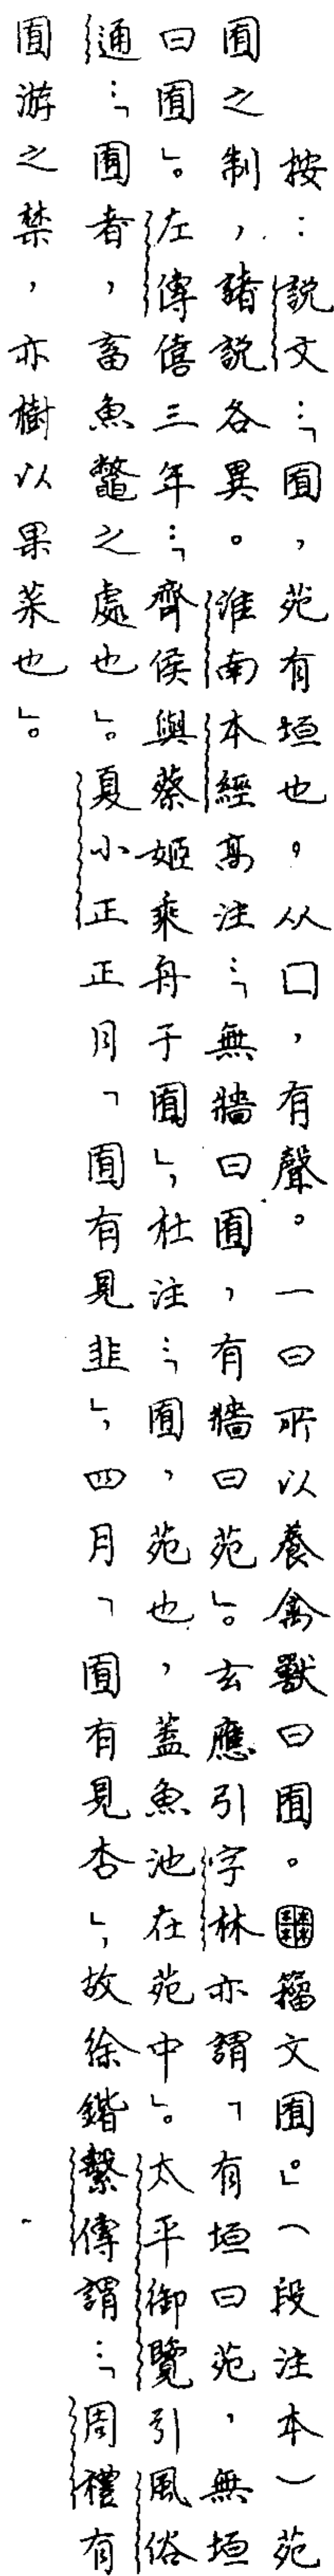 按：說文：「囿，苑有垣也，从囗，有聲。一曰所以養禽獸曰囿。籀文囿。」（段注本）苑
囿之制，諸說各異。淮南本經高注：「無牆曰囿，有牆曰苑」。玄應引字林亦謂「有垣曰苑，無垣
曰囿」。左傳僖三年：「齊侯與蔡姬乘舟于囿」，杜注：「囿，苑也，蓋魚池在苑中」。太平御覽引風俗
通：「囿者，畜魚鼈之處也」。夏小正正月「囿有見韭」，四月「囿有見杏」，故徐鍇繫傳謂：「周禮有
囿游之禁，亦樹以果菜也」。